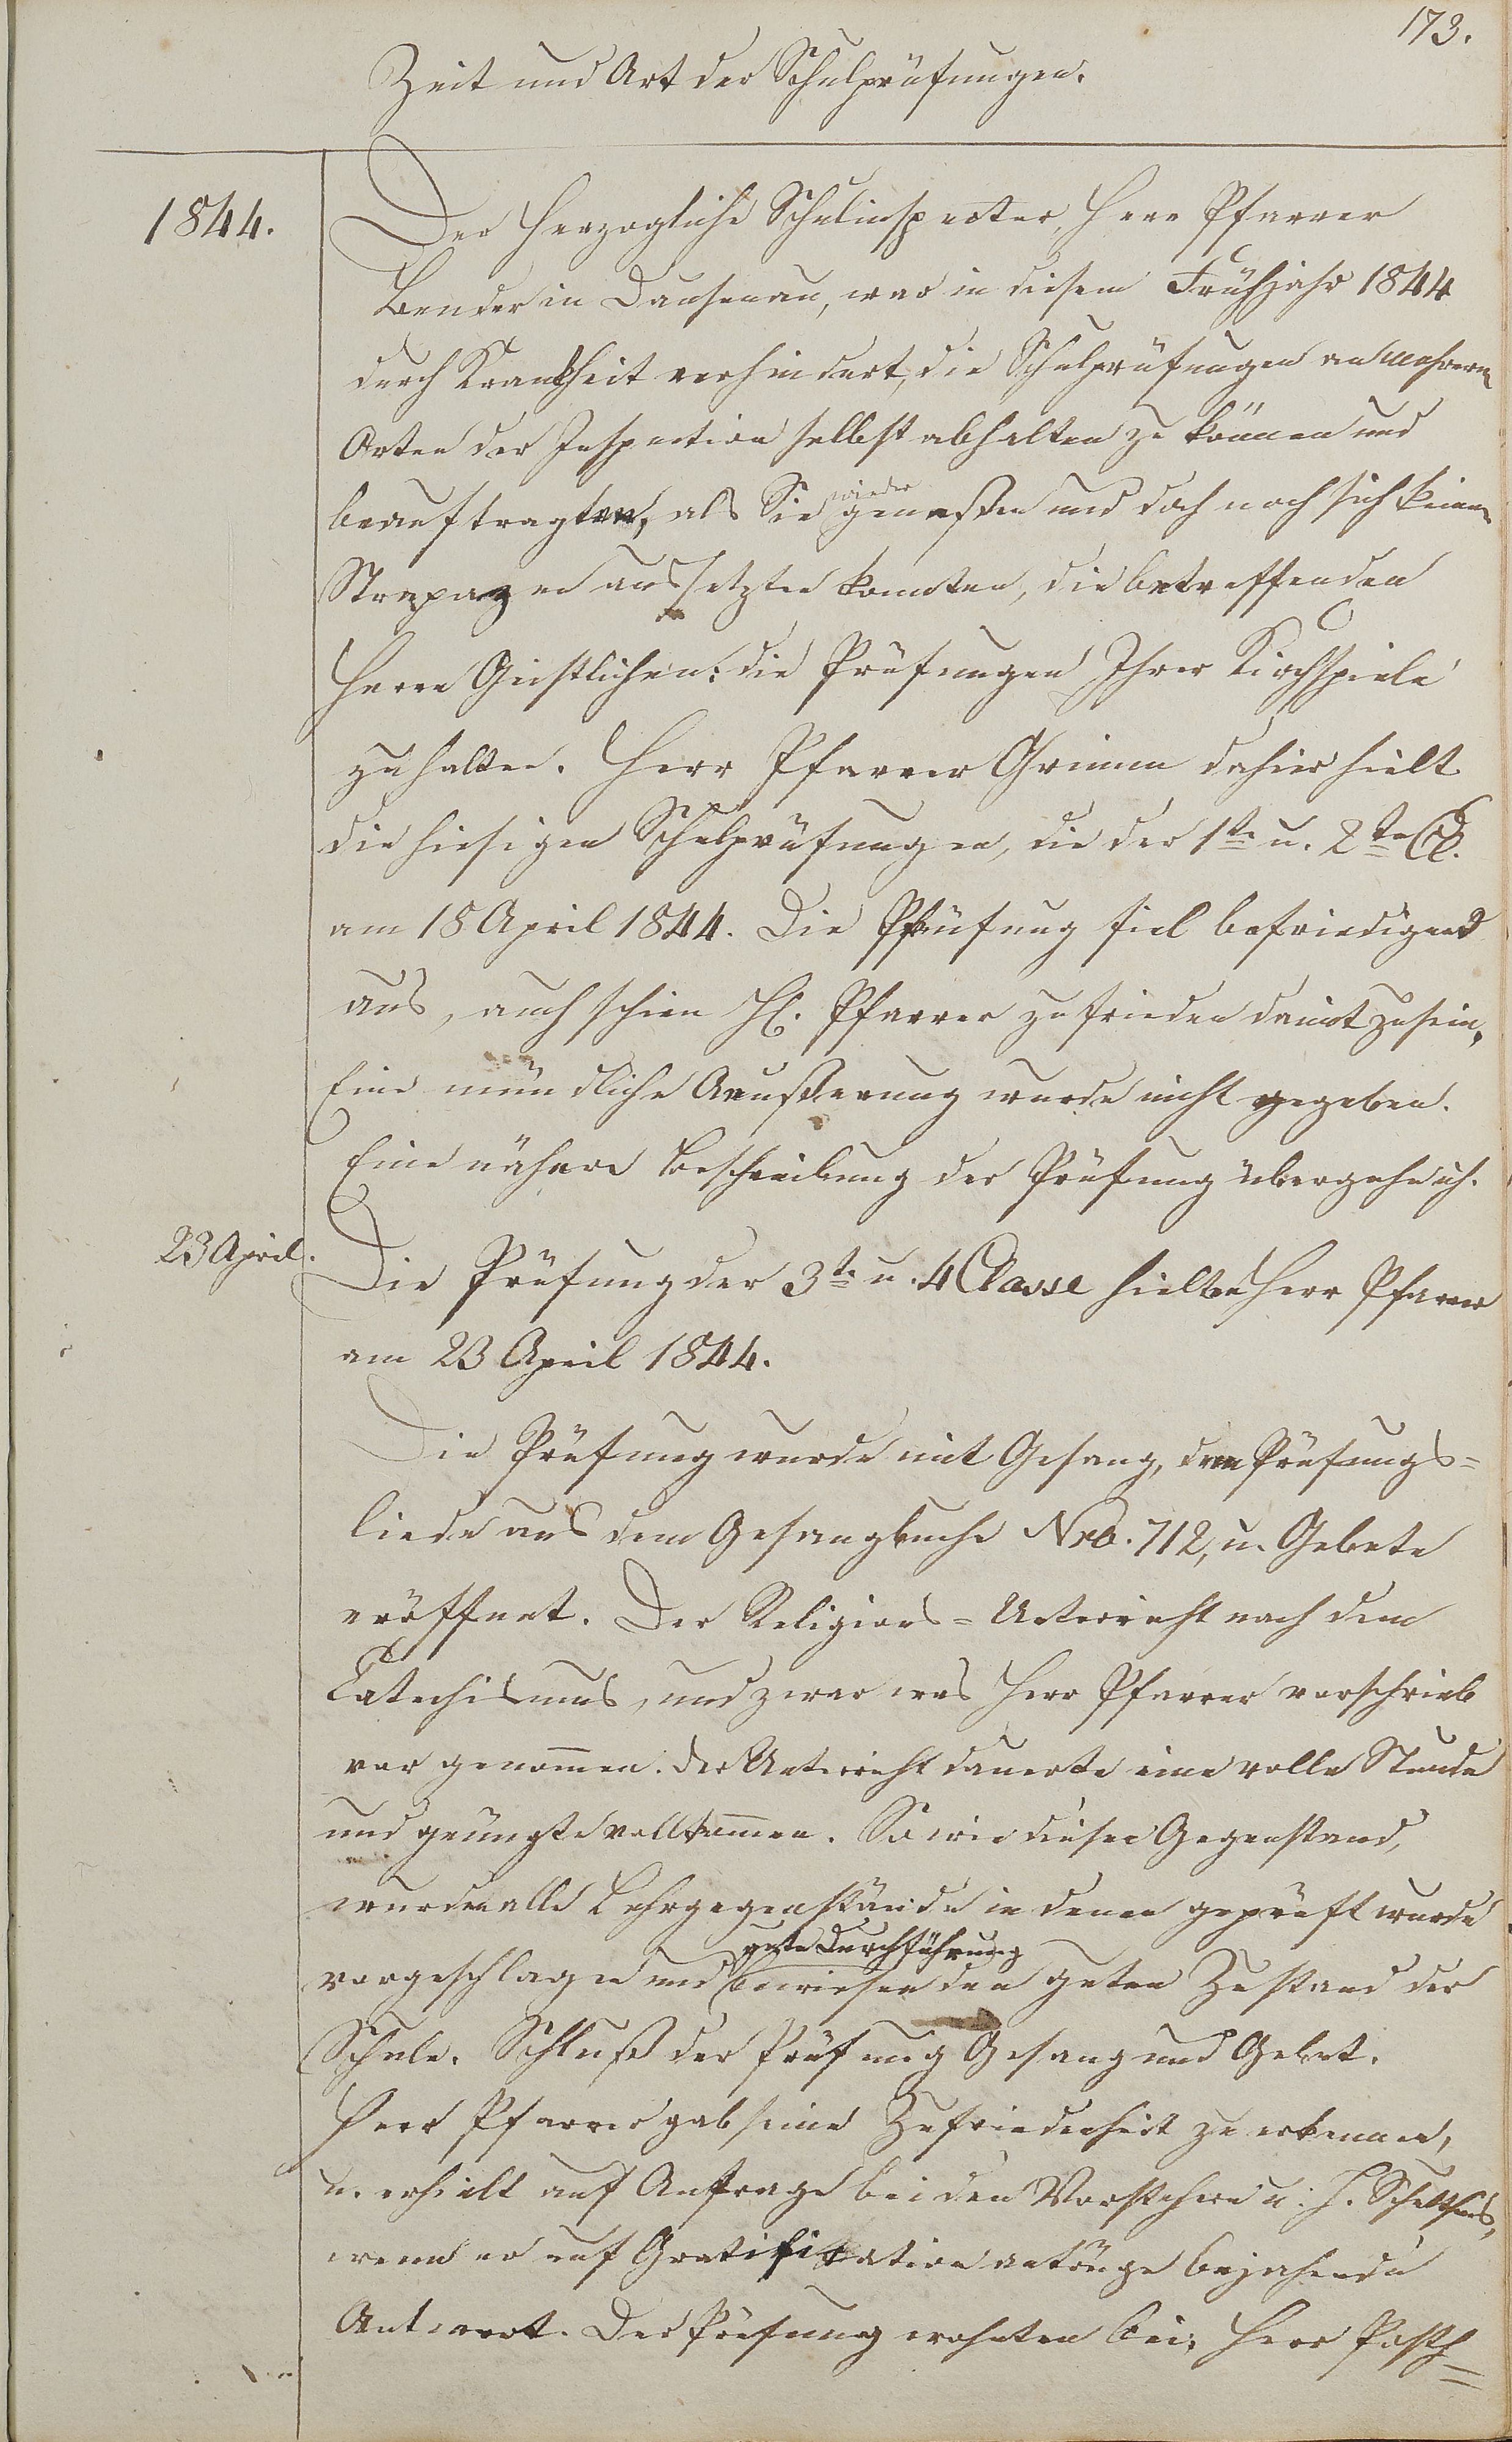 173.
Zeit und Art der Schulprüfungen.
1844.
Der Herzogliche Schulinspector, Herr Pfarrer
Bender in Dausenau, war in diesem Frühjahr 1844
durch Krankheit verhindert, die Schulprüfungen an mehrern
Orten der Inspection selbst abhalten zu können und
beauftragten, als Sie wieder genesen und doch noch sich keinen
Strapazen aussetzten konnten, die betreffenden
Herrn Geistlichen: die Prüfungen Ihrer Kirchspiele
zu halten. Herr Pfarrer Grimm dahier hielt
die hiesigen Schulprüfungen, die der 1te u. 2te Cl.
am 18 April 1844. Die Prüfung fiel befriedigend
aus, auch schien H. Pfarrer zufrieden damit zu sein.
Eine mündliche Aeußerung wurde nicht gegeben.
Eine nähere Beschreibung der Prüfung übergehe ich.
23 April.
Die Prüfung der 3te u. 4 Classe hielten Herr Pfarrer
am 23 April 1844.
Die Prüfung wurde mit Gesang, dem Prüfungs=
liede aus dem Gesangbuche Nro. 712, u. Gebete
eröffnet. Der Religions=Unterricht nach dem
Catechismus, und zwar was Herr Pfarrer vorschrieb
vor genommen. Der Unterricht dauerte eine volle Stunde
und genügte vollkommen. So wie dieser Gegenstand,
wurden alle Lehrgegenstände in denen geprüft wurde
gute Durchführung
vorgeschlagen und bewiesen den guten Zustand der
Schule. Schluß der Prüfung Gesang und Gebet.
Herr Pfarrer gab seine Zufriedenheit zu erkennen,
u. erhielt auf Anfrage bei den Vorstehern u. H. Schultheis,
wenn er auf Gratifikation antrüge bejahende
Antwort. Der Prüfung wohnten bei; Herr Posth=